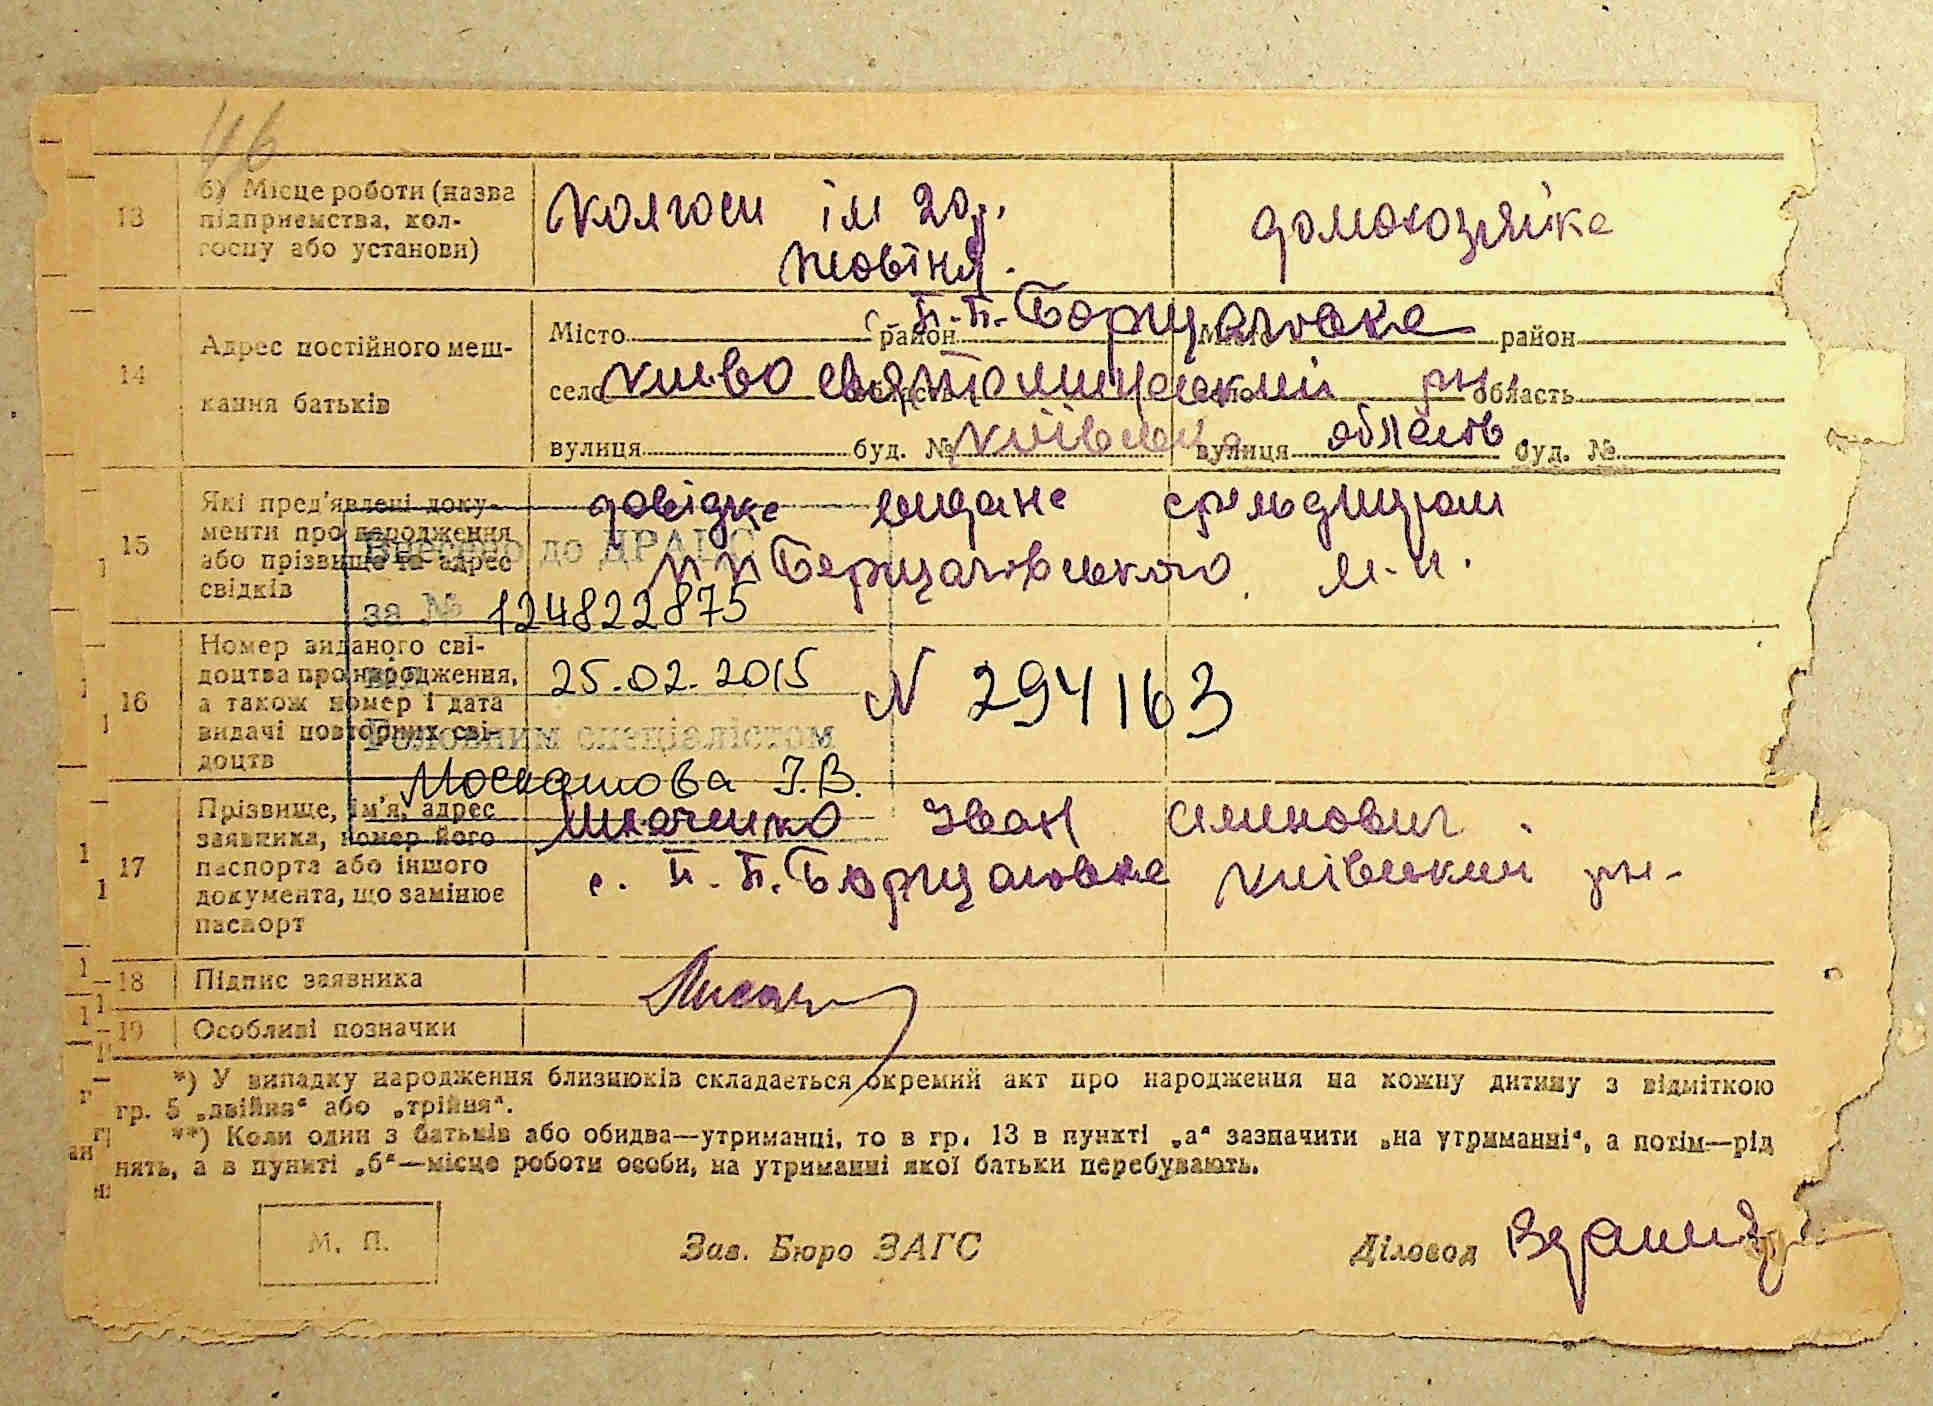 46
13
б) Місце роботи (назва
підприємства, кол-
госпу або установи)
колгосп ім 20 р.
Жовтня.
домохозяйка
14
Адрес постійного меш-
кання батьків
Місто район Місто район
с П.-П.-Борщаговка
село область село область
Києво Святошинський рн.
вулиця буд. № вулиця буд. №
Київська область
15
Які пред'явлені доку-
менти про народження
або прізвище та адрес
свідків
довідка видана фельдшером
ппБорщаговського м.п.
Внесено до ДРАЦС
за № 124822875
від 25.02.2015
Головним спеціалістом
Москашова І.В.
16
Номер виданого сві-
доцтва про народження,
а також номер і дата
видачі повторних сві-
доцтв
N 294163
17
Прізвище, ім'я, адрес
заявника, номер його
паспорта або іншого
документа, що замінює
паспорт
Іван Семенович.
с. П. П. Борщаговка Київський рн.
18 Підпис заявника
19 Особливі позначки
*) У випадку народження близнюків складається окремий акт про народження на кожну дитину з відміткою
гр. 5 „двійня“ або „трійня“.
**) Коли один з батьків або обидва—утриманці, то в гр. 13 в пункті „а“ зазначити „на утриманні“, а потім—рід
нять, а в пункті „б“—місце роботи особи, на утриманні якої батьки перебувають.
М. П.
Зав. Бюро ЗАГС
Діловод